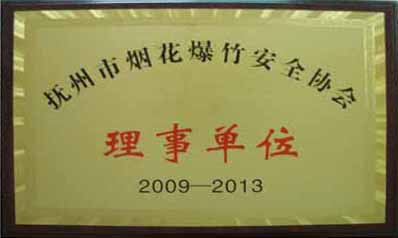 抚州市烟花爆竹安全协会
理事单位
2009—2013